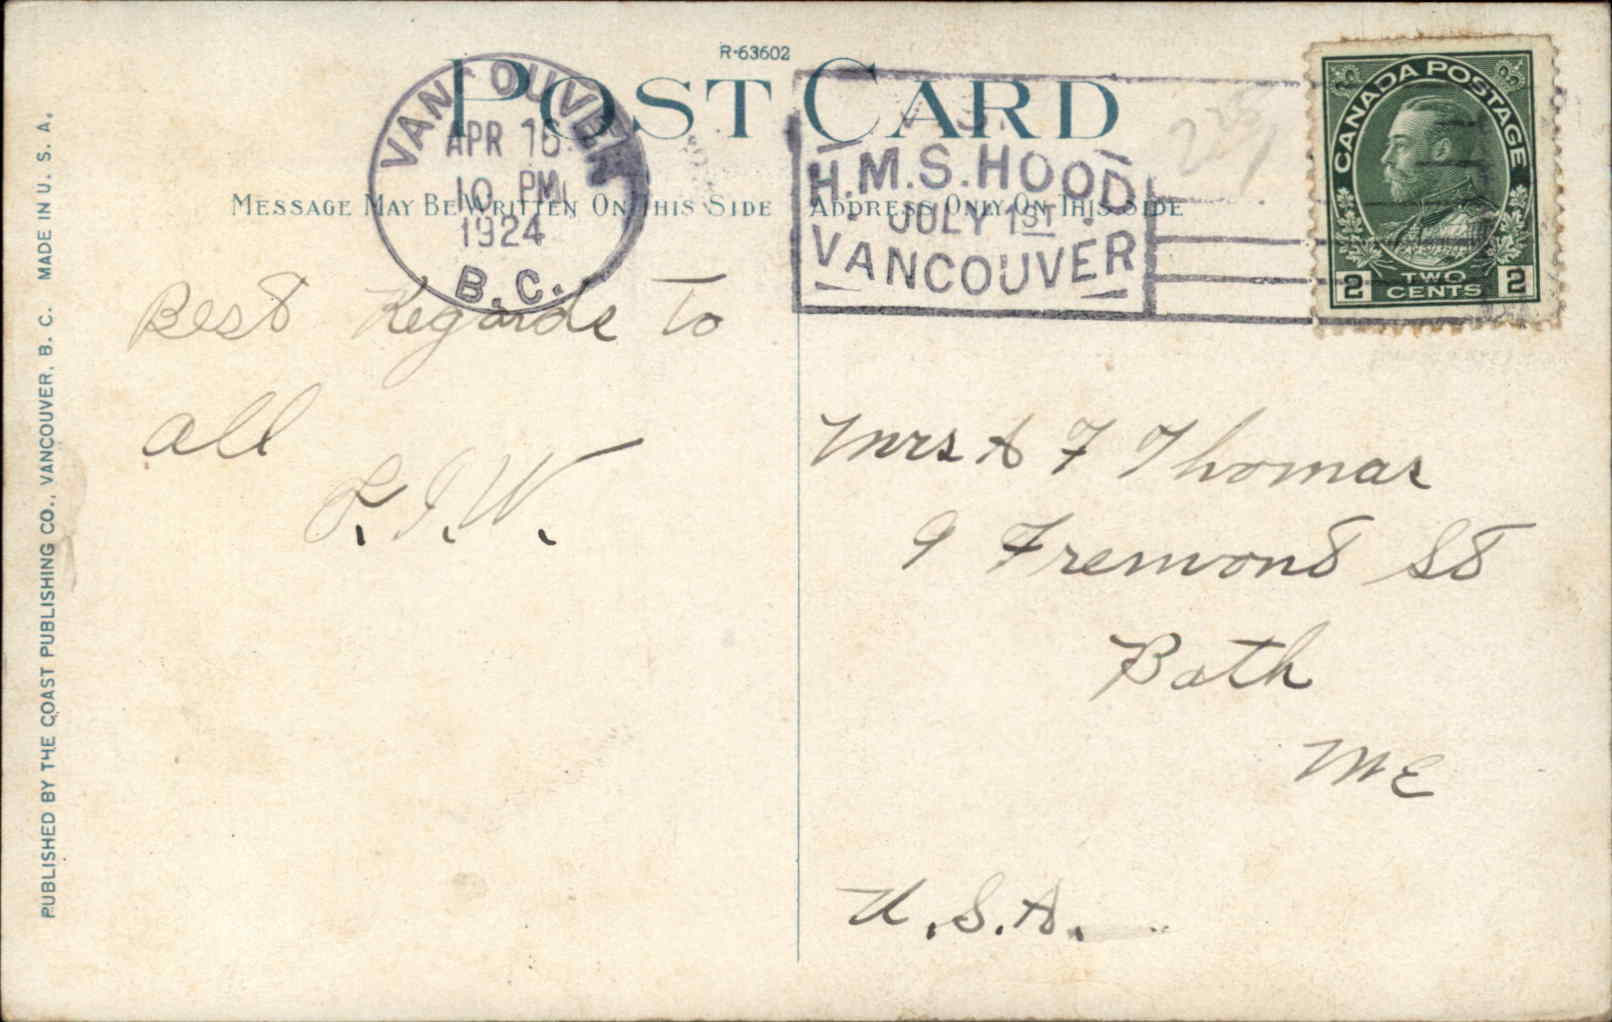 R-63602
POST CARD
MESSAGE MAY BE WRITTEN ON THIS SIDE
ADDRESS ONLY ON THIS SIDE
VANCOUVER
APR 16
10 PM
1924
B.C.
H.M.S. HOOD
JULY 1ST
VANCOUVER
CANADA POSTAGE
2 TWO CENTS 2
Best Regards To
all
L.I.W.
Mrs A F Thomas
9 Fremont St
Bath
ME
U.S.A.
PUBLISHED BY THE COAST PUBLISHING CO., VANCOUVER, B. C. MADE IN U. S. A.